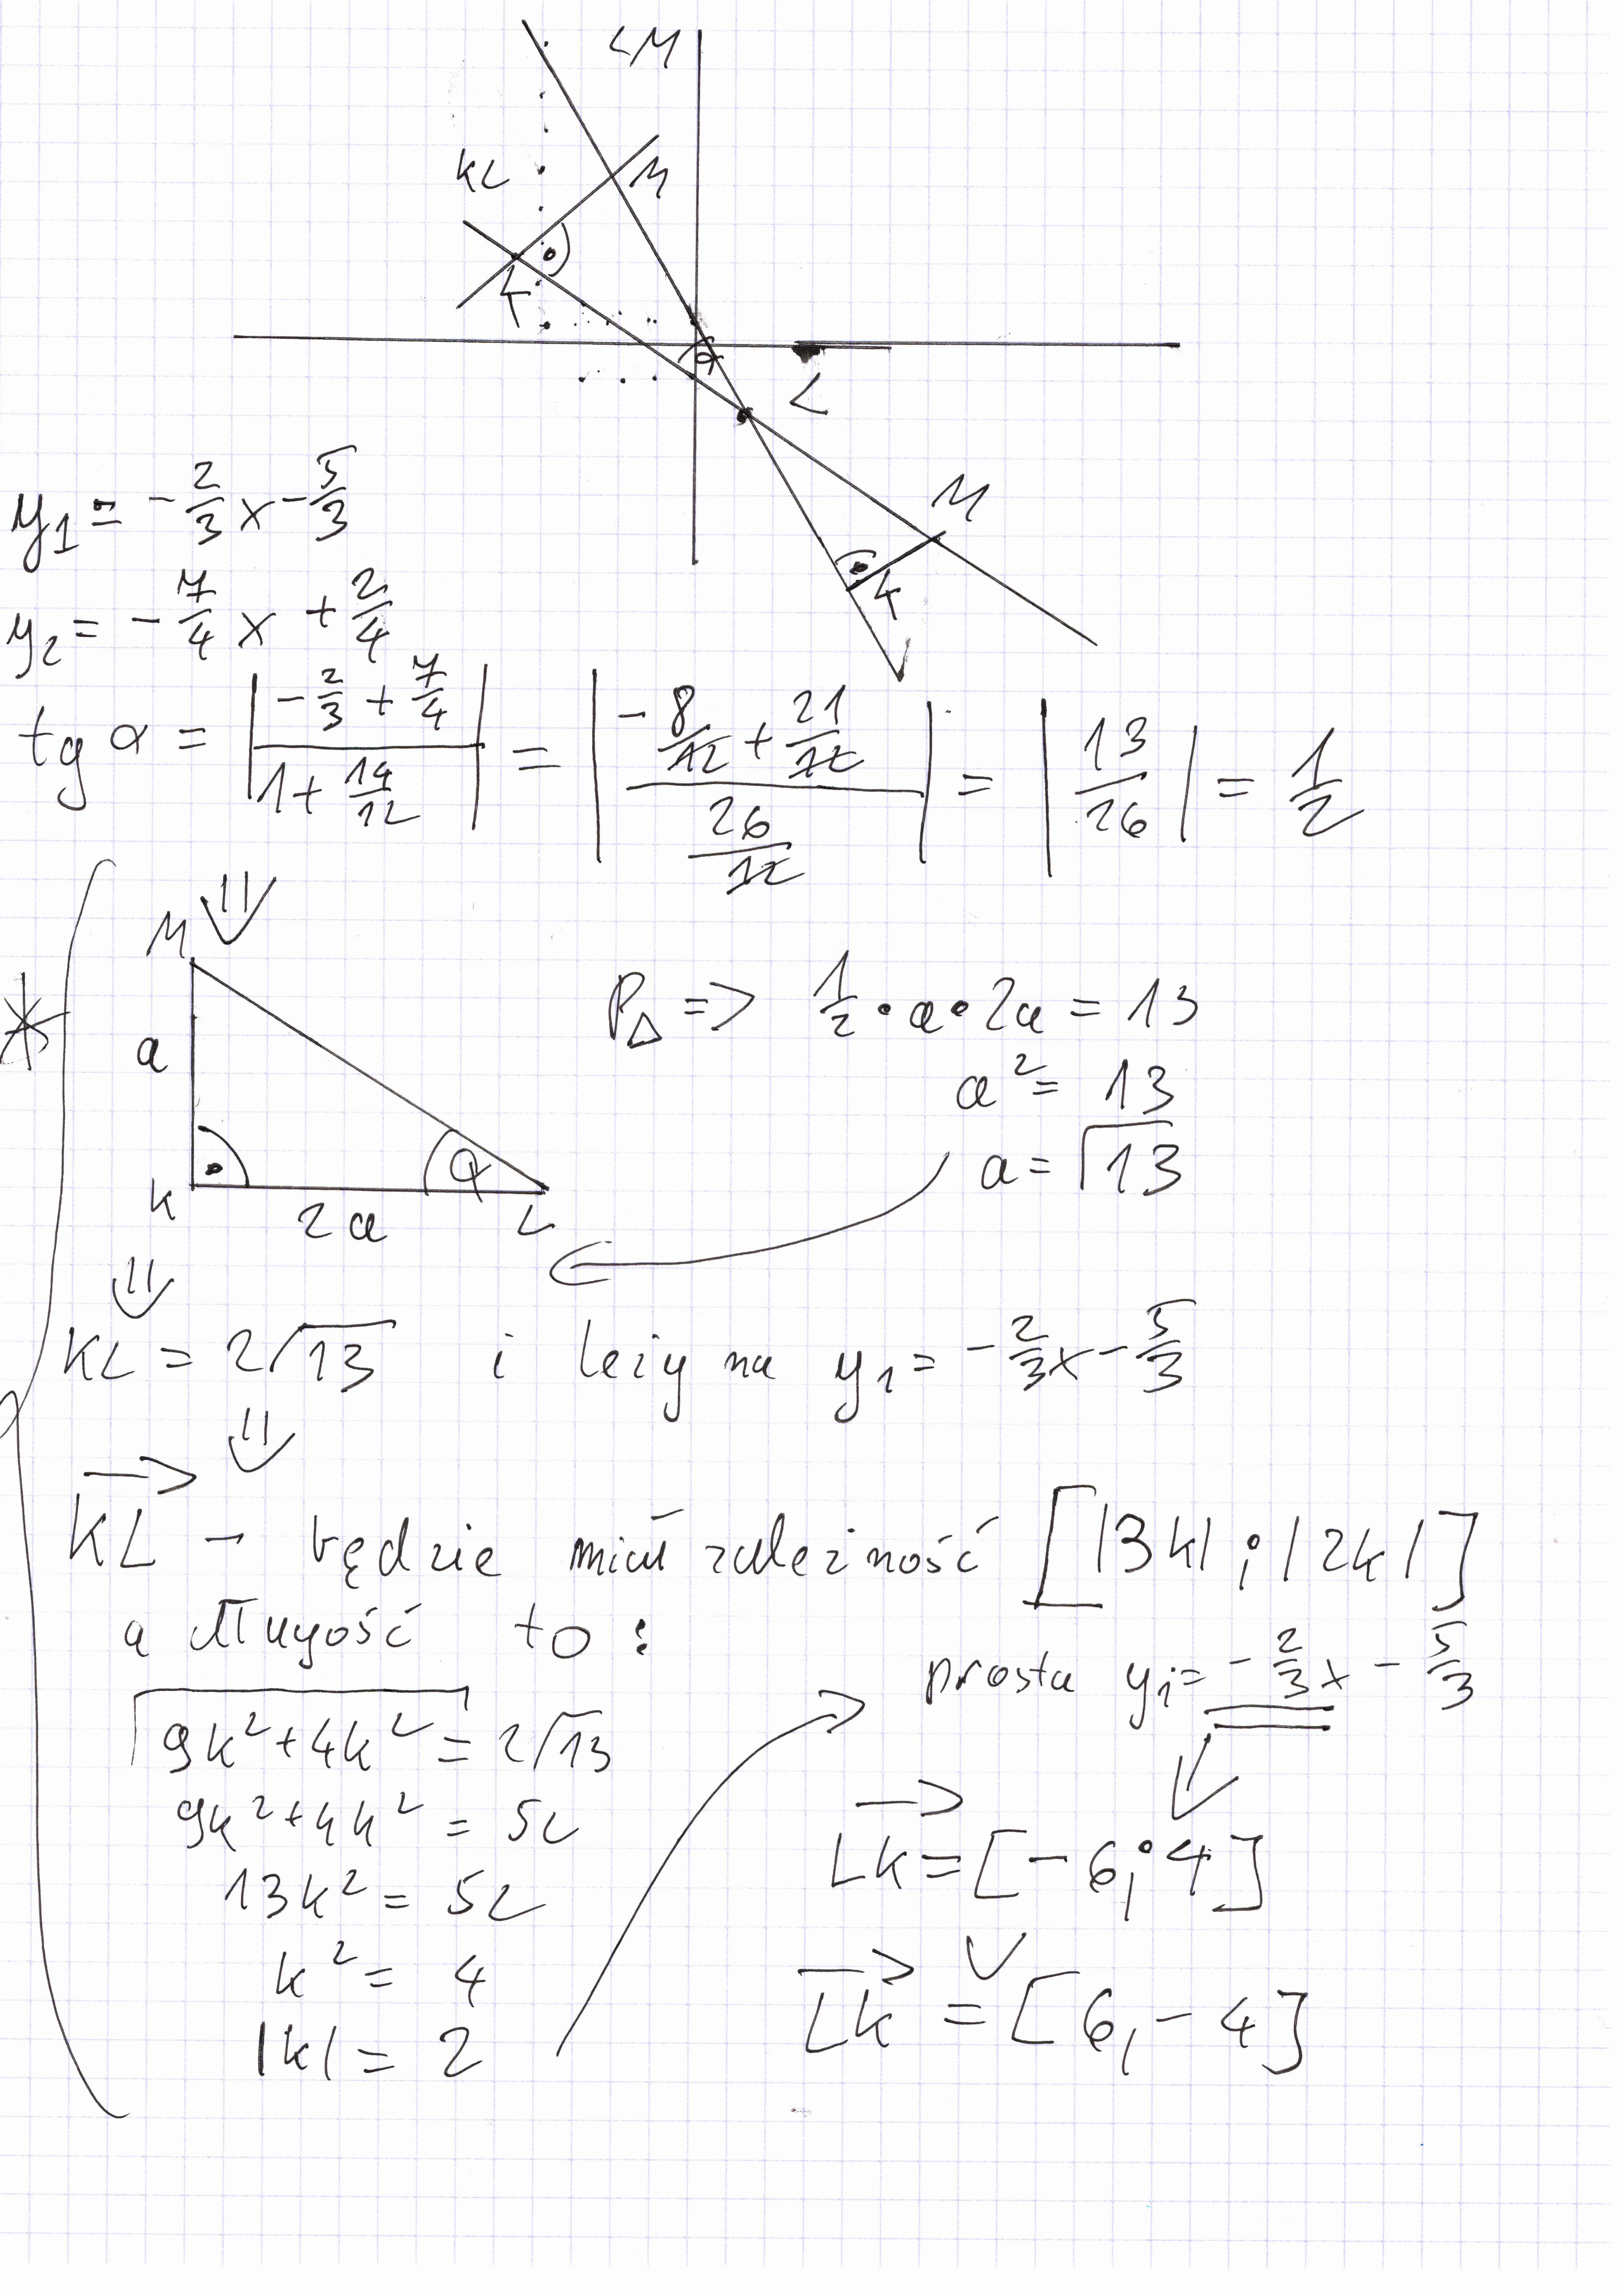 LM
KL
M
K
α
L
M
K
y₁ = -2/3 x - 5/3
y₂ = -7/4 x + 2/4
tg α = |(-2/3 + 7/4)/(1 + 14/12)| = |(-8/12 + 21/12)/(26/12)| = |13/26| = 1/2
⇓
M
a
K
2a
α
L
P△ => 1/2 · a · 2a = 13
a² = 13
a = √13
⇓
KL = 2√13 i leży na y₁ = -2/3 x - 5/3
⇓
KL→ - będzie miał zależność [|3k| ; |2k|]
a długość to :
√(9k² + 4k²) = 2√13
9k² + 4k² = 52
13k² = 52
k² = 4
|k| = 2
prosta y₁ = -2/3 x - 5/3
⇓
LK→ = [-6 ; 4]
∨
LK→ = [6, -4]